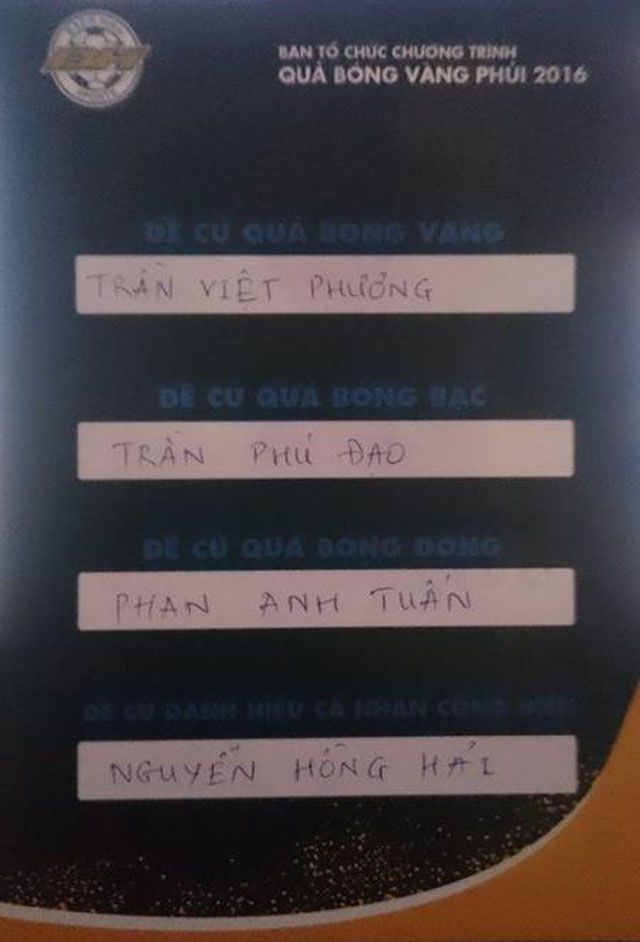 BAN TỔ CHỨC CHƯƠNG TRÌNH
QUẢ BÓNG VÀNG PHỦI 2016
ĐỀ CỬ QUẢ BÓNG VÀNG
TRẦN VIỆT PHƯƠNG
ĐỀ CỬ QUẢ BÓNG BẠC
TRẦN PHÚ ĐẠO
ĐỀ CỬ QUẢ BÓNG ĐỒNG
PHAN ANH TUẤN
ĐỀ CỬ DANH HIỆU CÁ NHÂN CỐNG HIẾN
NGUYỄN HỒNG HẢI